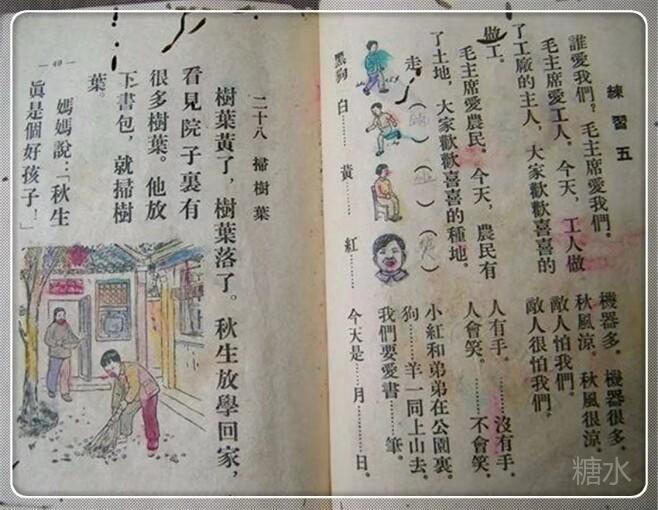 練習五
誰愛我們?毛主席愛我們。
毛主席愛工人。今天,工人做
了工廠的主人,大家歡歡喜喜的
做工。
毛主席愛農民。今天,農民有
了土地,大家歡歡喜喜的種地。
走 ( ) ( ) (笑)
黑狗 白……… 黃……… 紅………
機器多。 機器很多。
秋風涼。 秋風很涼。
敵人怕我們。
敵人很怕我們。
人有手。 ………沒有手。
人會笑。 ………不會笑。
小紅和弟弟在公園裏。
狗………羊一同上山去。
我們要愛書………筆。
今天是………月………日。
二十八 掃樹葉
樹葉黃了,樹葉落了。秋生放學回家,
看見院子裏有
很多樹葉。他放
下書包,就掃樹
葉。
媽媽說:「秋生
眞是個好孩子!」
— 49 —
糖水